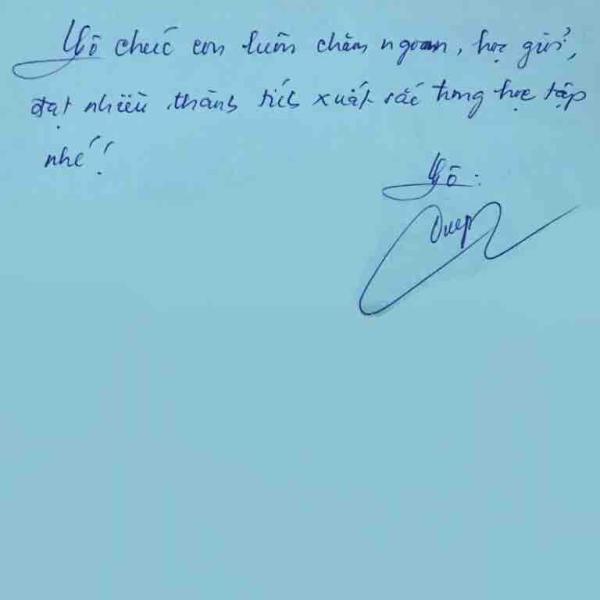 Cô chúc con luôn chăm ngoan, học giỏi,
đạt nhiều thành tích xuất sắc trong học tập
nhé!
Cô: